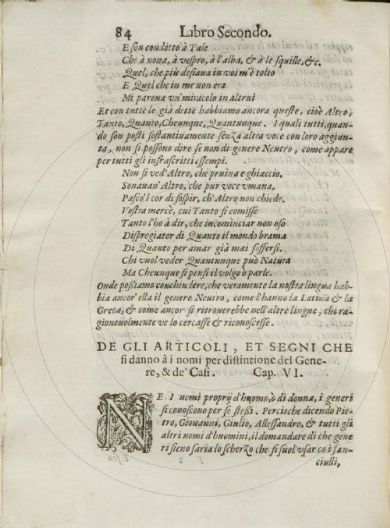 84 Libro Secondo.
E son condotto à Tale
Che à nona, à vespro, à l'alba, & à le squille, &c.
Quel, che più desiaua in voi m'è tolto
E Quel che in me non era
Mi pareua vn'miracolo in altrui
Et con tutte le già dette habbiamo ancora queste, cioè Altro,
Tanto, Quanto, Cheunque, Quantunque. I quali tutti, quan-
do son posti sostantiuamente senza altra voce con loro aggiun-
ta, non si possono dire se non di genere Neutro, come appare
per tutti gli infrascritti essempi.
Non si ved'Altro, che pruina e ghiaccio.
Sonauan'Altro, che pur voce vmana.
Pasco'l cor di sospir, ch'Altro non chiede.
Vostra mercè, cui Tanto si comisse
Tanto l'ho à dir, che incominciar non oso
Dispregiator di Quanto al mondo brama
Di Quanto per amar già mai soffersi.
Chi vuol veder Quantunque può Natura
Ma Cheunque si pensi il volgo ò parle.
Onde possiamo conchiudere, che veramente la nostra lingua hab-
bia ancor'ella il genere Neutro, come l'hanno la Latina & la
Greca, & come ancor si ritrouerebbe nell'altre lingue, chi ra-
gioneuolmente ve lo cercasse & riconoscesse.
DE GLI ARTICOLI, ET SEGNI CHE
si danno à i nomi per distintione del Gene-
re, & de' Casi. Cap. VI.
NE I nomi proprij d'huomo, ò di donna, i generi
si conoscono per se stessi. Percioche dicendo Pie-
tro, Giouanni, Giulio, Allessandro, & tutti gli
altri nomi d'huomini, il domandare di che gene
ri sieno saria lo scherzo che si suol'vsar co i fan-
ciulli,